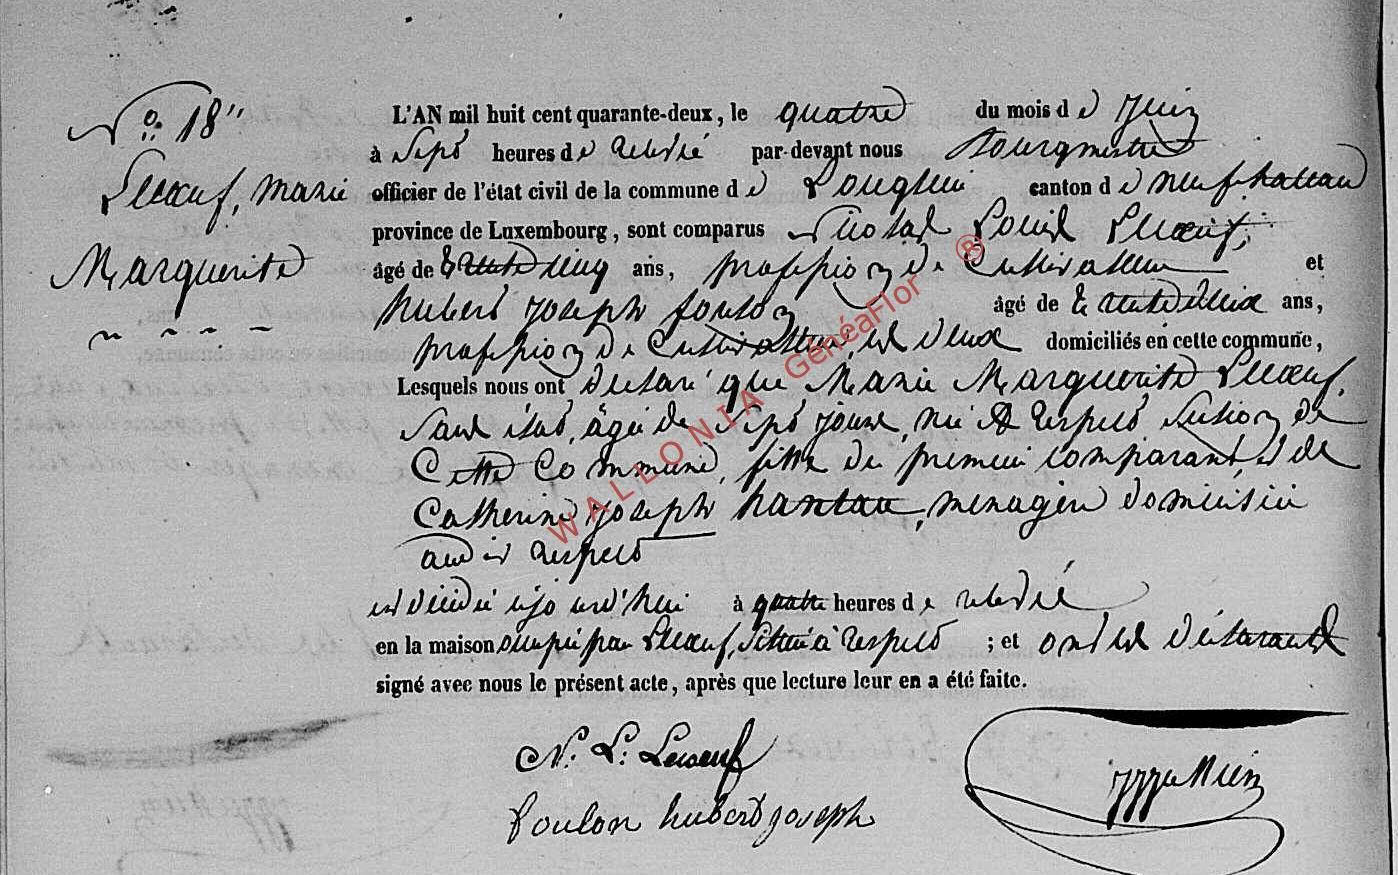 N° 18"
Lecœuf, Marie
Marguerite
L'AN mil huit cent quarante-deux, le quatre du mois d e Juin
à Sept heures d e relevé par-devant nous Bourgmestre
officier de l'état civil de la commune d e Longlier canton d e neufchateau
province de Luxembourg, sont comparus Nicolas Louis Lecœuf,
âgé de trente cinq ans, profession de Cultivateur et
hubert joseph foulon âgé de trente deux ans,
profession de Cultivateur, les deux domiciliés en cette commune,
Lesquels nous ont déclaré que Marie Marguerite Lecœuf,
sans état, âgée de Sept jours, née à respelt Section de
Cette Commune, fille du premier comparant, et de
Catherine joseph hantau, menagère domiciliée
audit respelt
est décédée cejourd'hui à quatre heures d e relevé
en la maison occupée par Lecœuf, Située à respelt ; et ont les déclarants
signé avec nous le présent acte, après que lecture leur en a été faite.
N. L. Lecœuf
foulon hubert joseph
WALLONIA GénéaFlor ®